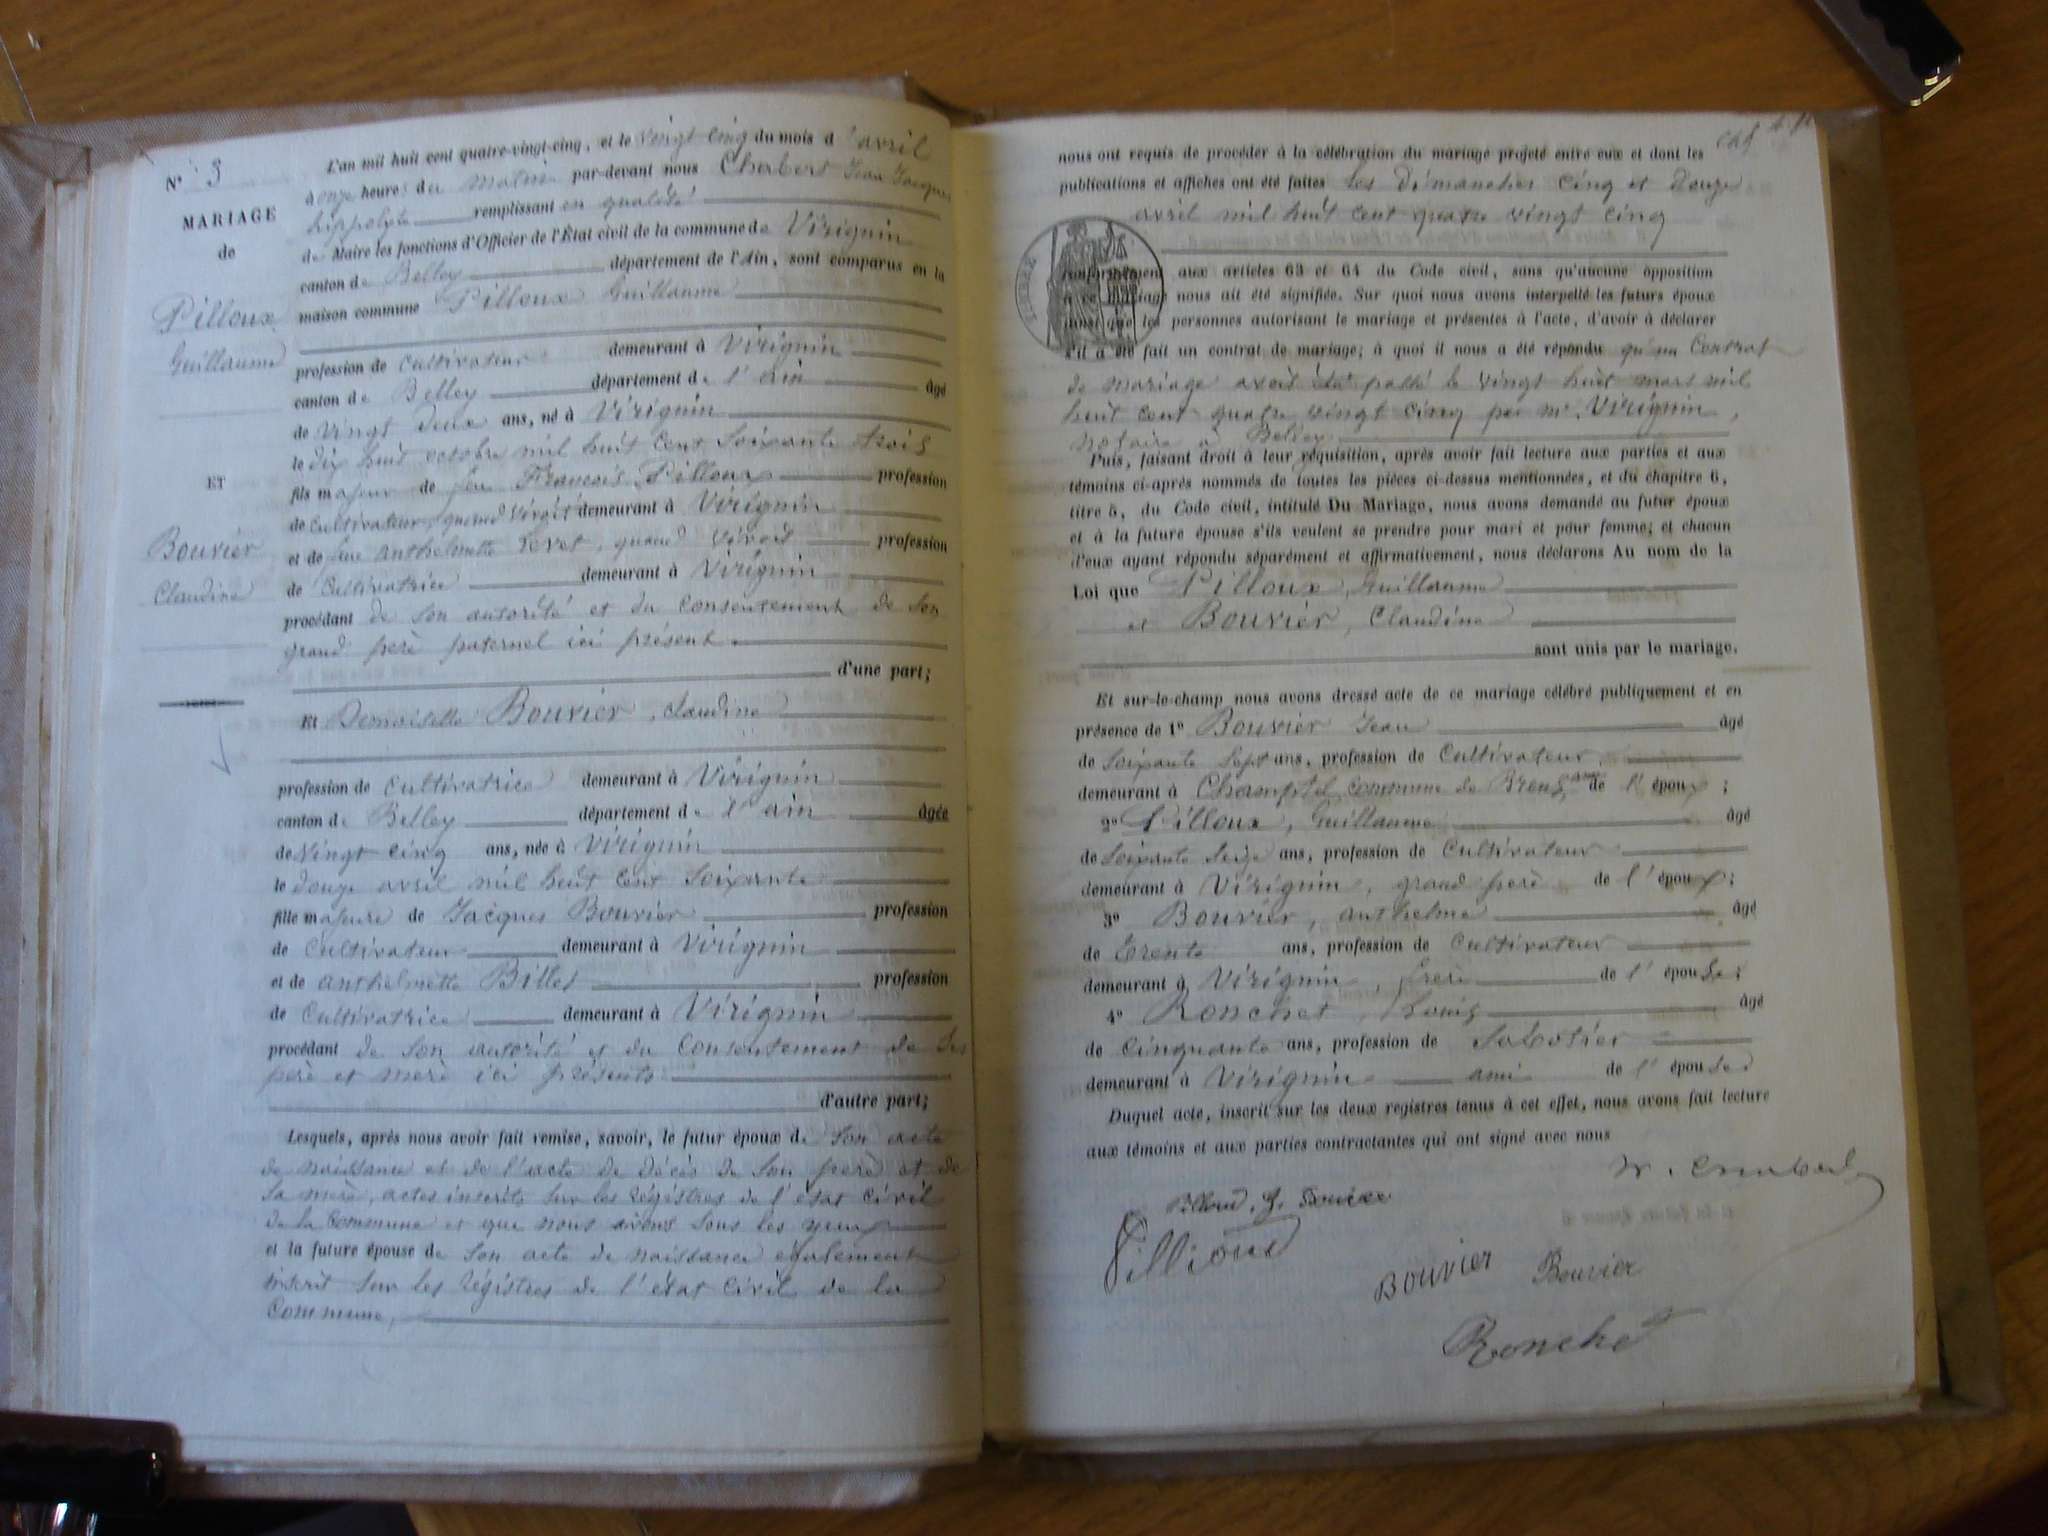 N° 3
MARIAGE
de
Pilloux
Guillaume
ET
Bouvier
Claudine
L'an mil huit cent quatre-vingt-cinq, et le vingt cinq du mois d'avril
à onze heures du matin par-devant nous Cherbert Jean Jacques
hippolyte remplissant en qualité
de Maire les fonctions d'Officier de l'État civil de la commune de Virignin
canton de Belley département de l'Ain, sont comparus en la
maison commune Pilloux Guillaume
profession de Cultivateur demeurant à Virignin
canton de Belley département de l'ain âgé
de vingt deux ans, né à Virignin
le dix huit octobre mil huit cent Soixante trois
fils majeur de feu François Pilloux profession
de Cultivateur, quand vivait demeurant à Virignin
et de feue anthelmette, quand vivait profession
de Cultivatrice demeurant à Virignin
procédant de son autorité et du consentement de son
grand perè paternel ici présent.
d'une part;
Et Demoiselle Bouvier, Claudine
profession de Cultivatrice demeurant à Virignin
canton de Belley département de l'ain âgée
de Vingt Cinq ans, née à Virignin
le douze avril mil huit cent Soixante
fille majeure de Jacques Bouvier profession
de Cultivateur demeurant à Virignin
et de anthelmette Billet profession
de Cultivatrice demeurant à Virignin
procédant de son autorité et du Consentement de ses
perè et merè ici présents
d'autre part;
Lesquels, après nous avoir fait remise, savoir, le futur époux de son acte
de naissance et de l'acte de décès de son perè et de
sa merè, actes inscrits sur les régistres de l'état civil
de la Commune et que nous avons sous les yeux
et la future épouse de son acte de naissance également
inscrit sur les régistres de l'état civil de la
Commune,
nous ont requis de procéder à la célébration du mariage projeté entre eux et dont les
publications et affiches ont été faites les dimanches Cinq et douze
avril mil huit cent quatre vingt cinq
conformément aux articles 63 et 64 du Code civil, sans qu'aucune opposition
à ce mariage nous ait été signifiée. Sur quoi nous avons interpellé les futurs époux
ainsi que les personnes autorisant le mariage et présentes à l'acte, d'avoir à déclarer
s'il a été fait un contrat de mariage; à quoi il nous a été répondu qu'un Contrat
de mariage avait été passé le vingt huit mars mil
huit cent quatre vingt cinq par me Virignin,
notaire à Belley
Puis, faisant droit à leur réquisition, après avoir fait lecture aux parties et aux
témoins ci-après nommés de toutes les pièces ci-dessus mentionnées, et du chapitre 6,
titre 5, du Code civil, intitulé Du Mariage, nous avons demandé au futur époux
et à la future épouse s'ils veulent se prendre pour mari et pour femme; et chacun
d'eux ayant répondu séparément et affirmativement, nous déclarons Au nom de la
Loi que Pilloux, Guillaume
et Bouvier, Claudine
sont unis par le mariage.
Et sur-le-champ nous avons dressé acte de ce mariage célébré publiquement et en
présence de 1° Bouvier Jean âgé
de soixante Sept ans, profession de Cultivateur
demeurant à Champtel Commune de Brens de l'époux;
2° Pilloux, Guillaume âgé
de Soixante Seize ans, profession de Cultivateur
demeurant à Virignin, grand perè de l'époux;
3° Bouvier, anthelme âgé
de trente ans, profession de Cultivateur
demeurant à Virignin, frerè de l'épouse;
4° Ronchet, Louis âgé
de Cinquante ans, profession de Sabotier
demeurant à Virignin ami de l'épouse
Duquel acte, inscrit sur les deux registres tenus à cet effet, nous avons fait lecture
aux témoins et aux parties contractantes qui ont signé avec nous
Pilloud
Bouvier Bouvier
Ronchet